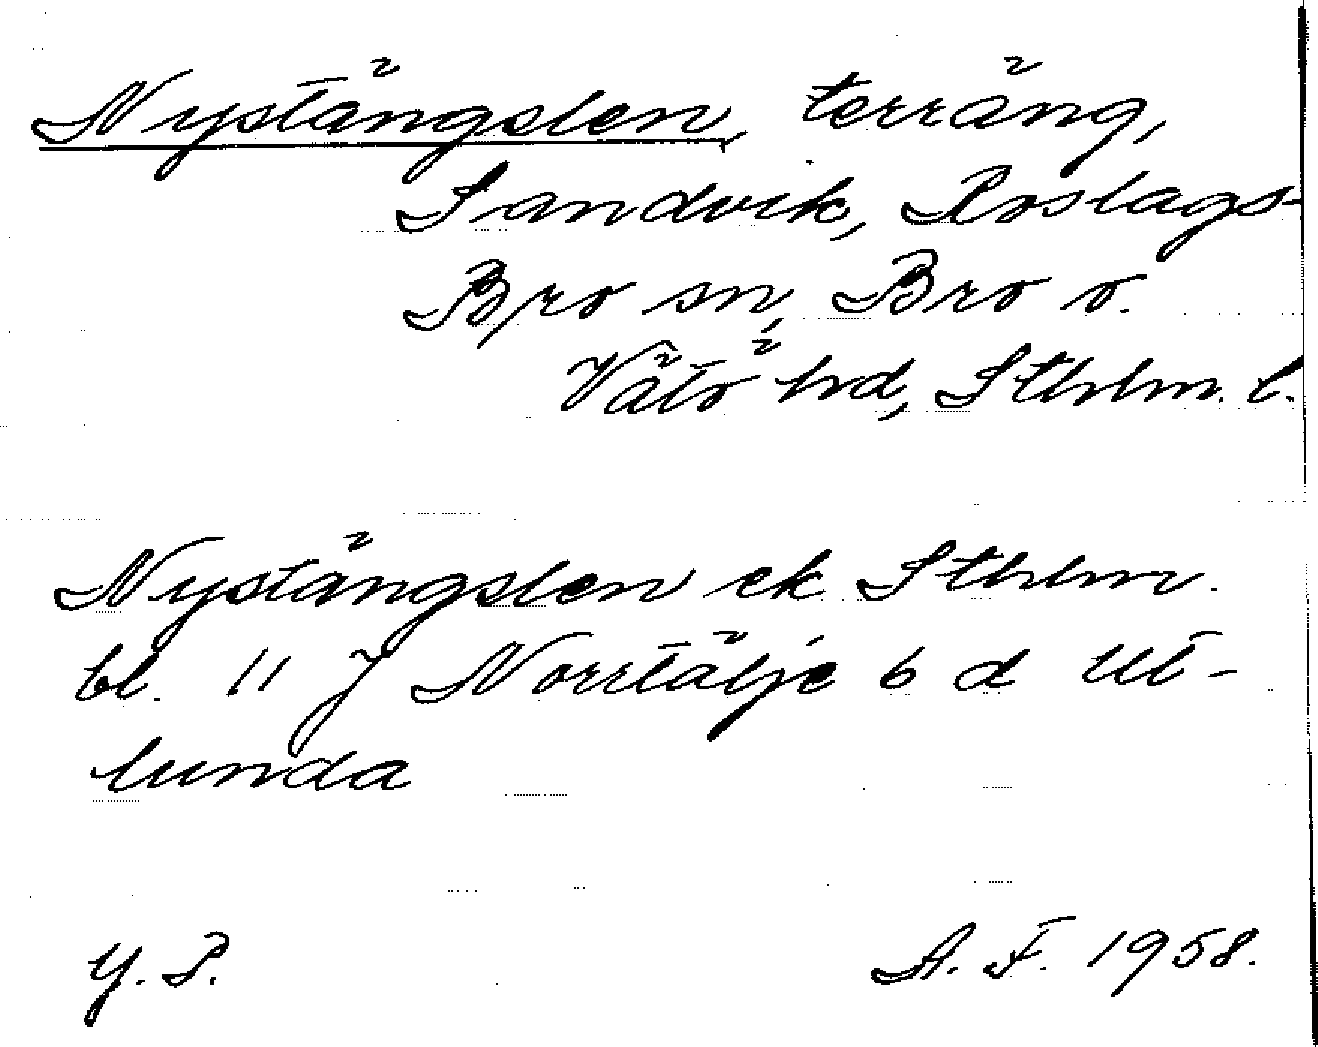 Nystängslen, terräng,
Sandvik, Roslags-
Bro sn, Bro o.
Vätö hd, Sthlm. l.
Nystängslen ek Sthlm.
bl. 11 J Norrtälje 6 d Ut-
lunda
Y. P.
A. F. 1958.